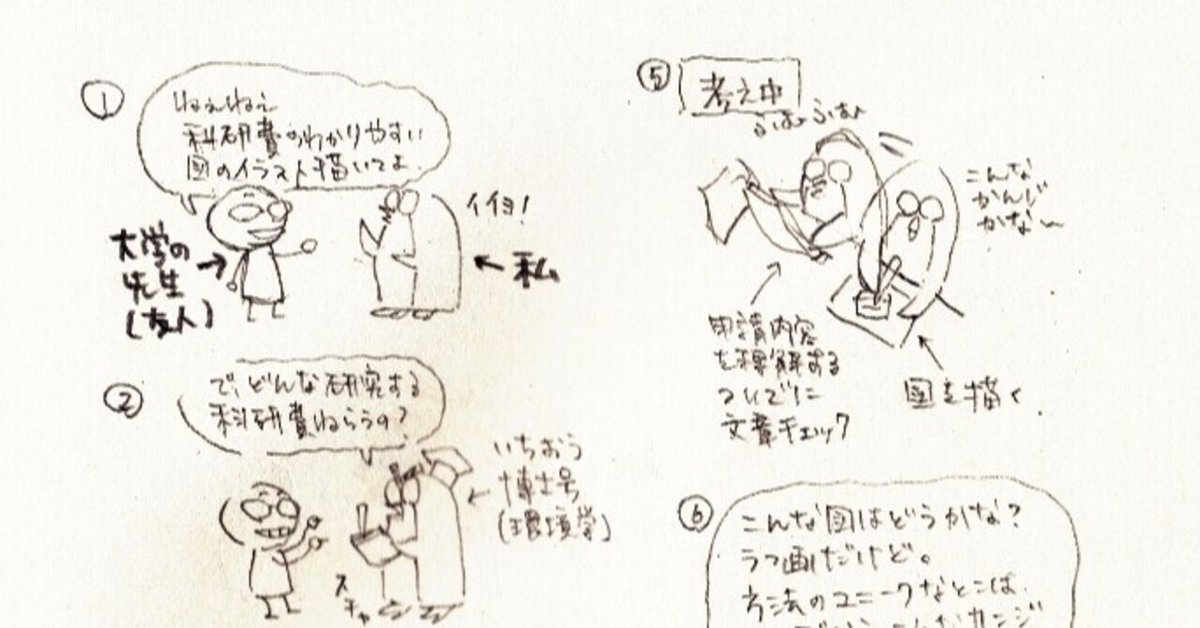 ①
ねぇねぇ
科研費のわかりやすい
図のイラスト描いてよ.
イイヨ!
大学の
先生
(友人)
私
②
で、どんな研究する
科研費ねらうの?
いちおう
博士号
(環境学)
スチャ
⑤
考え中
ふむふむ
こんな
かんじ
かな〜
申請内容
を理解する
ついでに
文章チェック
図を描く
⑥
こんな図はどうかな?
ラフ画だけど。
方法のユニークなとこは、
こんなカンジ